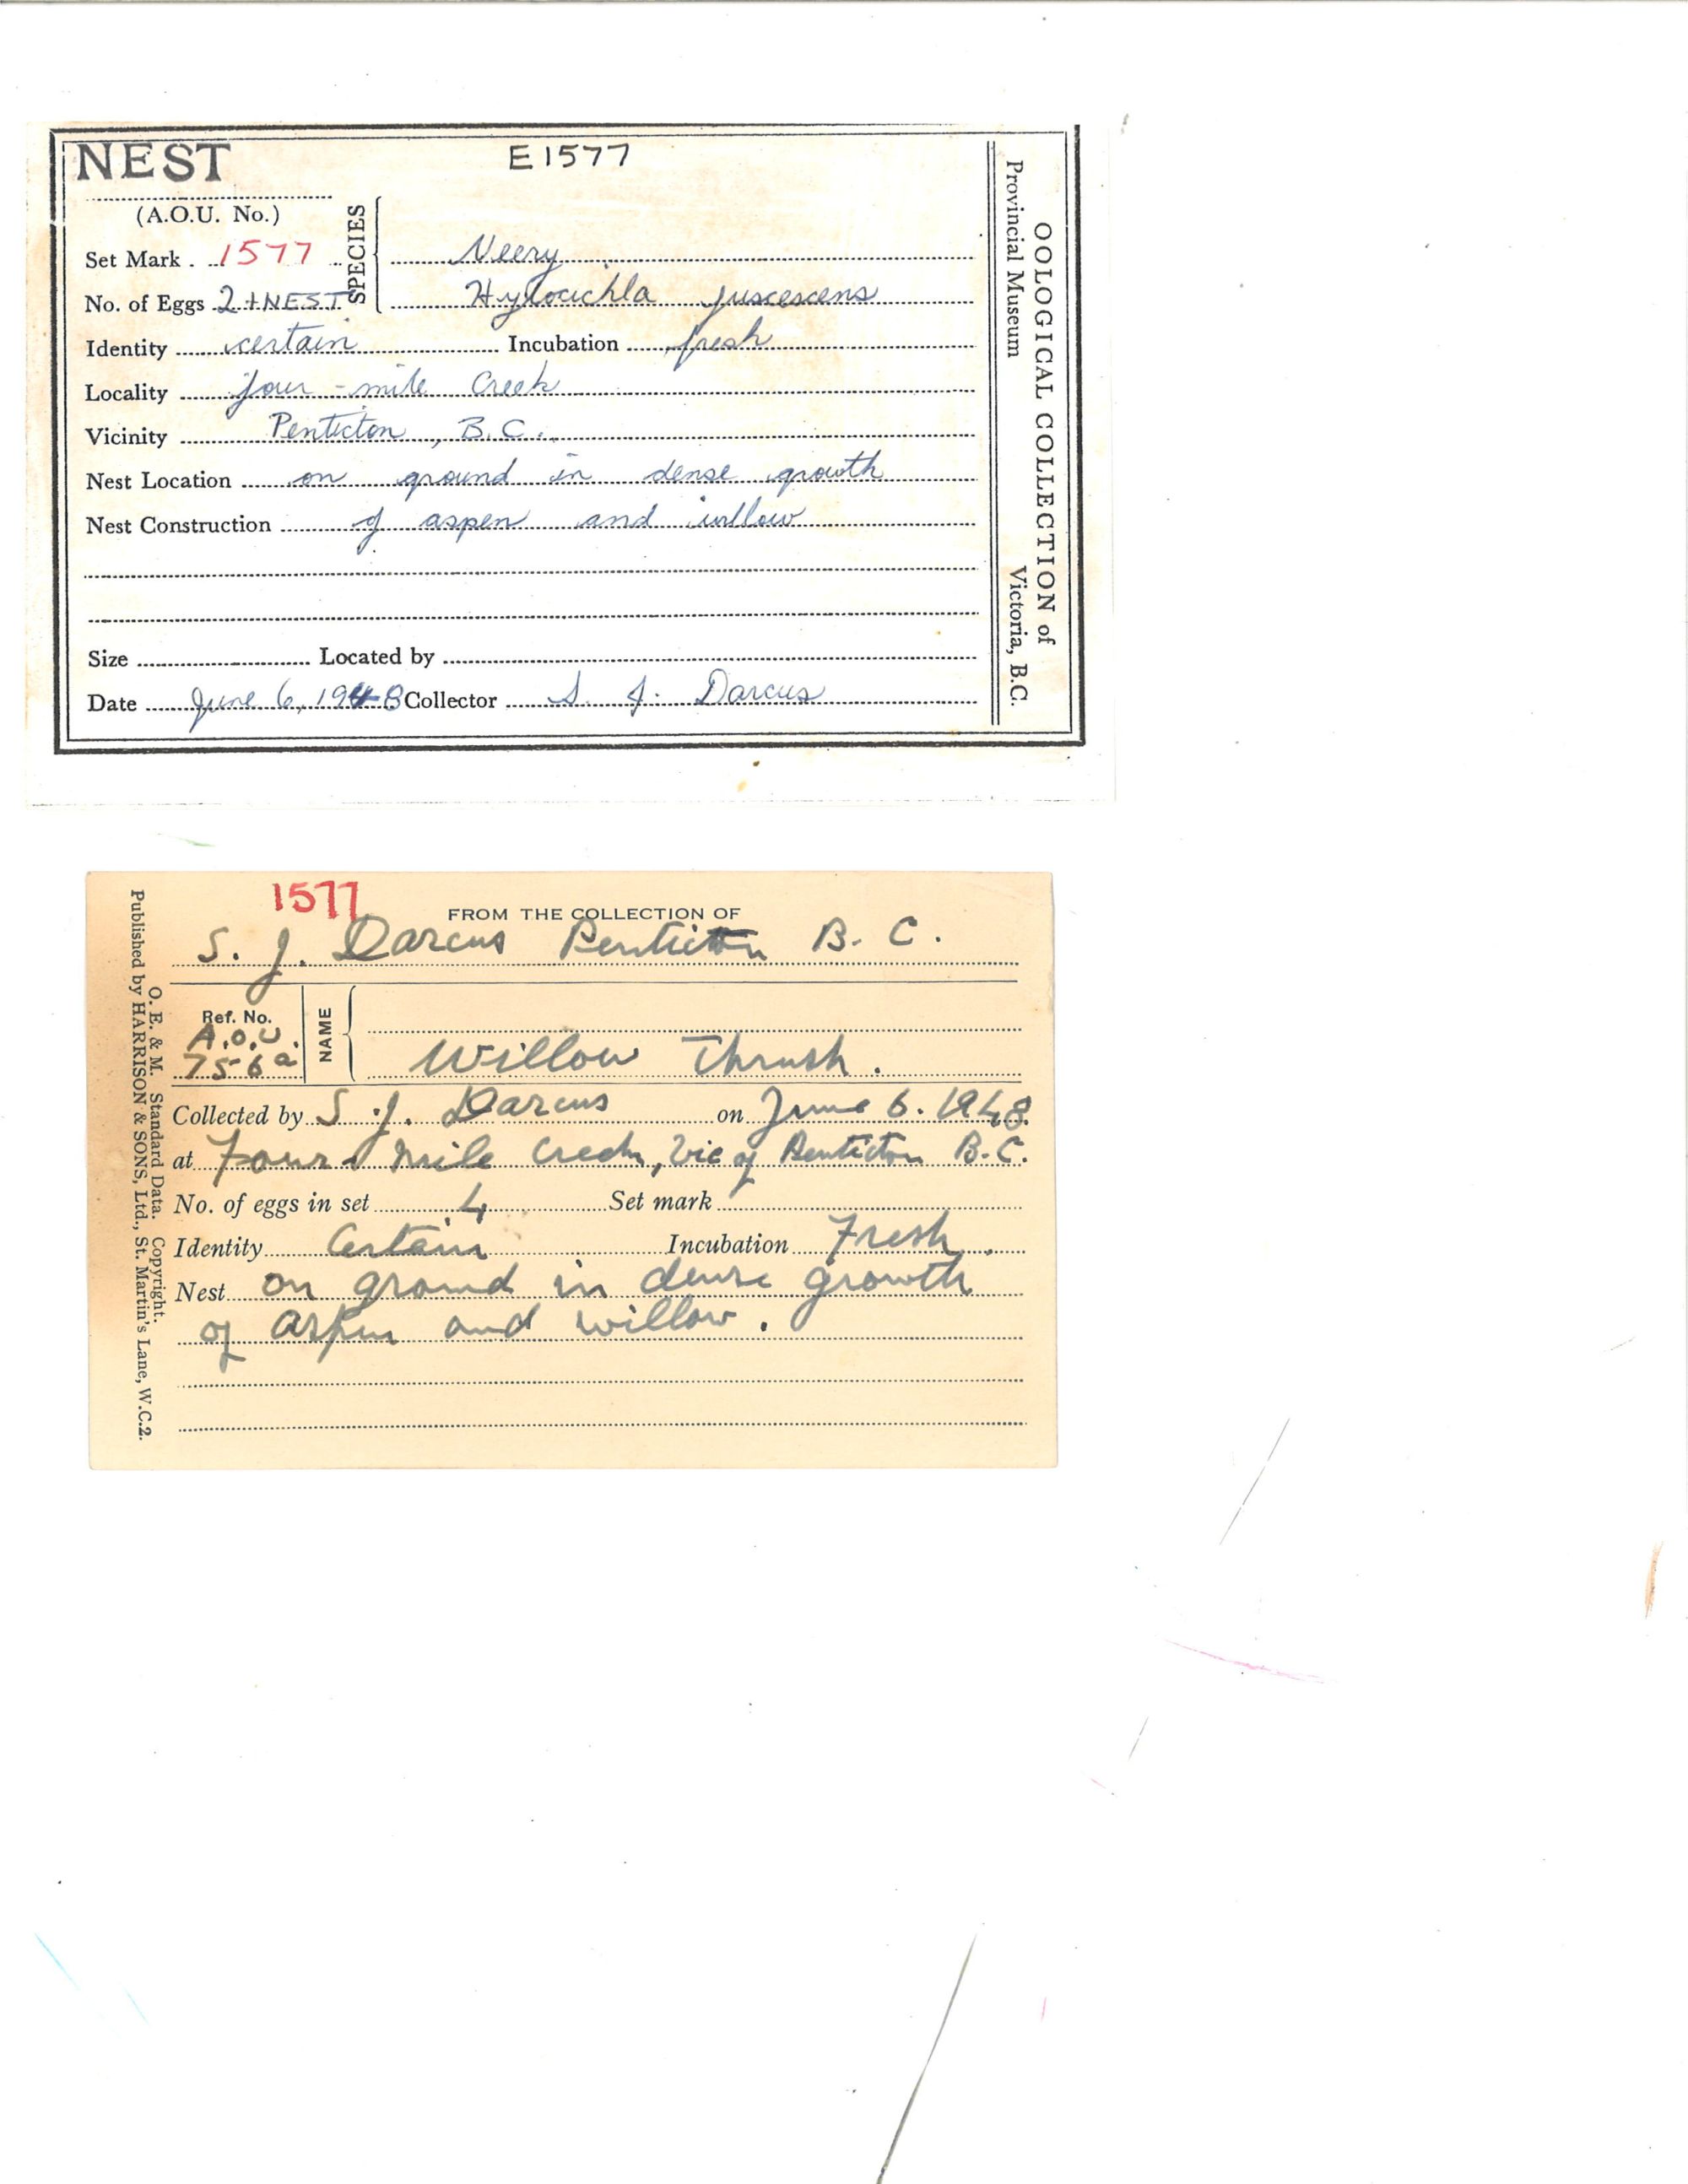 NEST
E1577
(A.O.U. No.)
SPECIES
Set Mark . 1577
Veery
No. of Eggs 2 + NEST
Hylocichla fuscescens
Identity certain Incubation fresh
Locality four-mile Creek
Vicinity Penticton, B.C.
Nest Location on ground in dense growth
Nest Construction of aspen and willow
Size Located by
Date June 6, 1948 Collector S. J. Darcus
OOLOGICAL COLLECTION of
Provincial Museum Victoria, B.C.
1577
FROM THE COLLECTION OF
S. J. Darcus Penticton B. C.
Ref. No.
A.O.U.
756a
NAME
Willow Thrush.
Collected by S. J. Darcus on June 6. 1948.
at Four Mile Creek, Vic of Penticton B.C.
No. of eggs in set 4 Set mark
Identity Certain Incubation Fresh.
Nest on ground in dense growth
of aspen and willow.
O. E. & M. Standard Data. Copyright.
Published by HARRISON & SONS, Ltd., St. Martin's Lane, W.C.2.